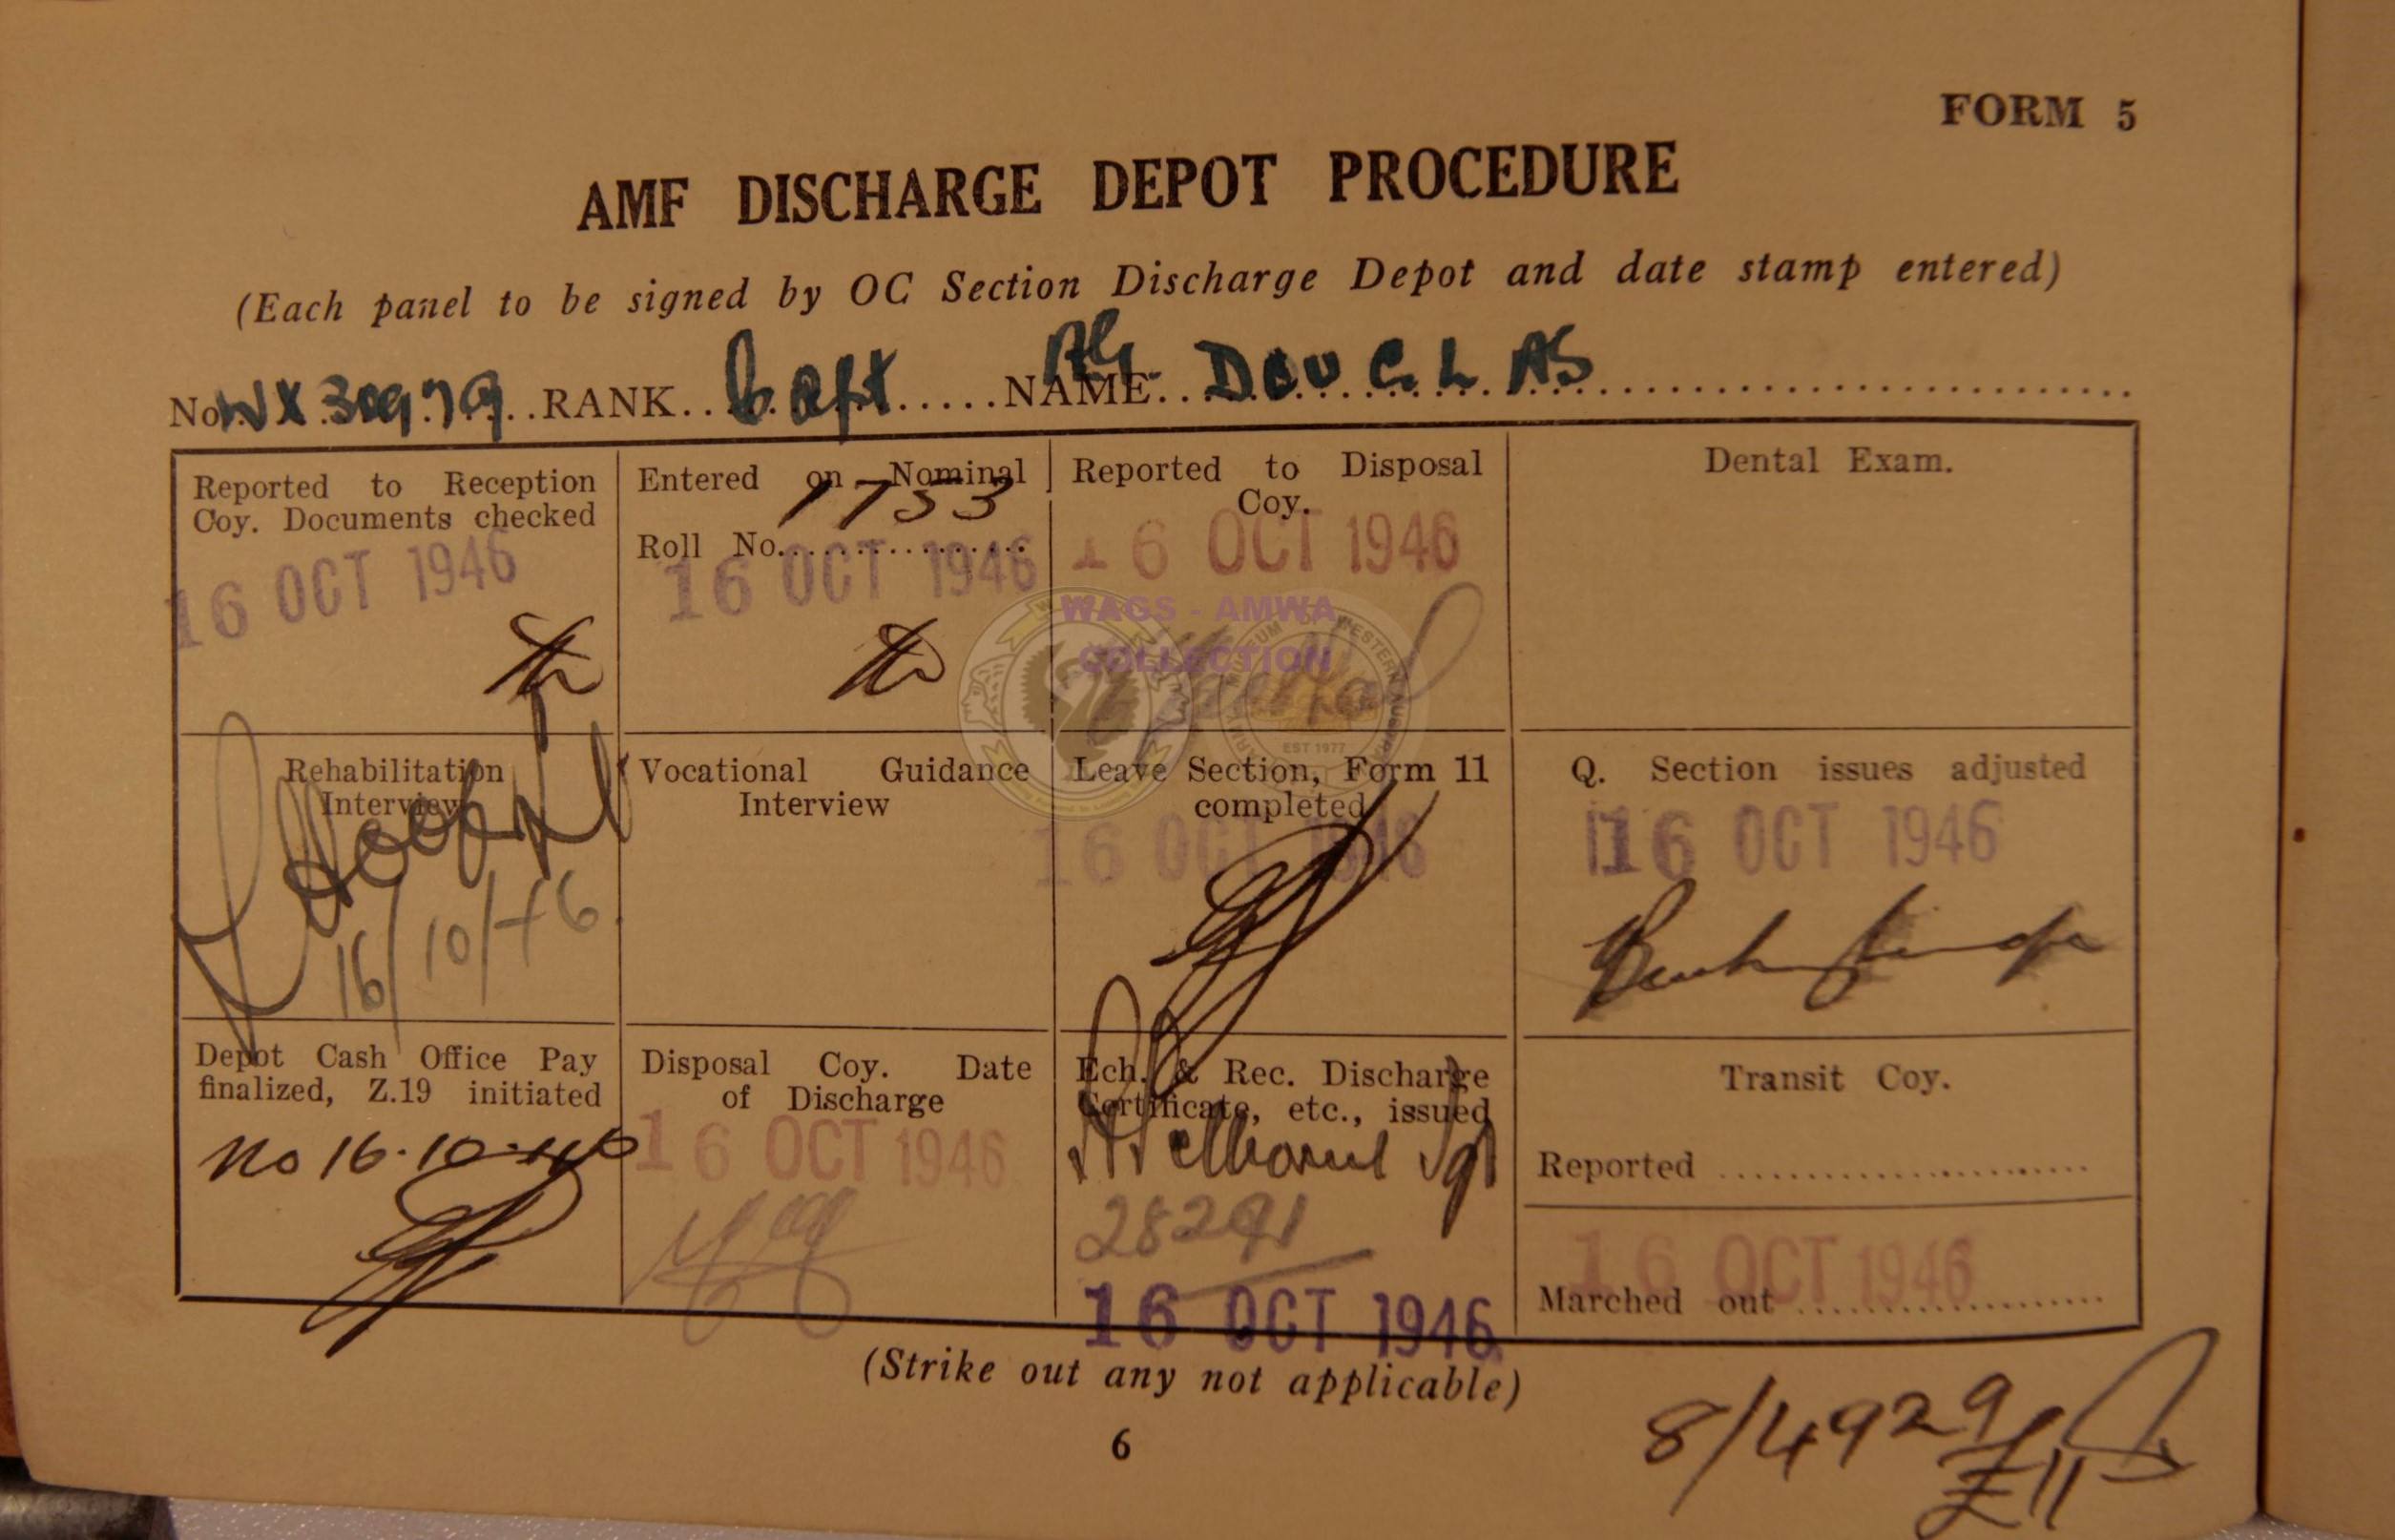 FORM 5
AMF DISCHARGE DEPOT PROCEDURE
(Each panel to be signed by OC Section Discharge Depot and date stamp entered)
No. WX 30979 RANK Capt NAME DOUGLAS
Reported to Reception
Coy. Documents checked
16 OCT 1946
Entered on Nominal
1753
Roll No.
16 OCT 1946
Reported to Disposal
Coy.
16 OCT 1946
Dental Exam.
WAGS - AMWA
COLLECTION
EST 1977
Rehabilitation
Interview
16/10/46.
Vocational Guidance
Interview
Leave Section, Form 11
completed
16 OCT 1946
Q. Section issues adjusted
16 OCT 1946
Depot Cash Office Pay
finalized, Z.19 initiated
No 16.10.46
Disposal Coy. Date
of Discharge
16 OCT 1946
Ech. & Rec. Discharge
Certificate, etc., issued
Sgt
28291
16 OCT 1946
Transit Coy.
Reported
16 OCT 1946
Marched out
(Strike out any not applicable)
6
8/4929
£11